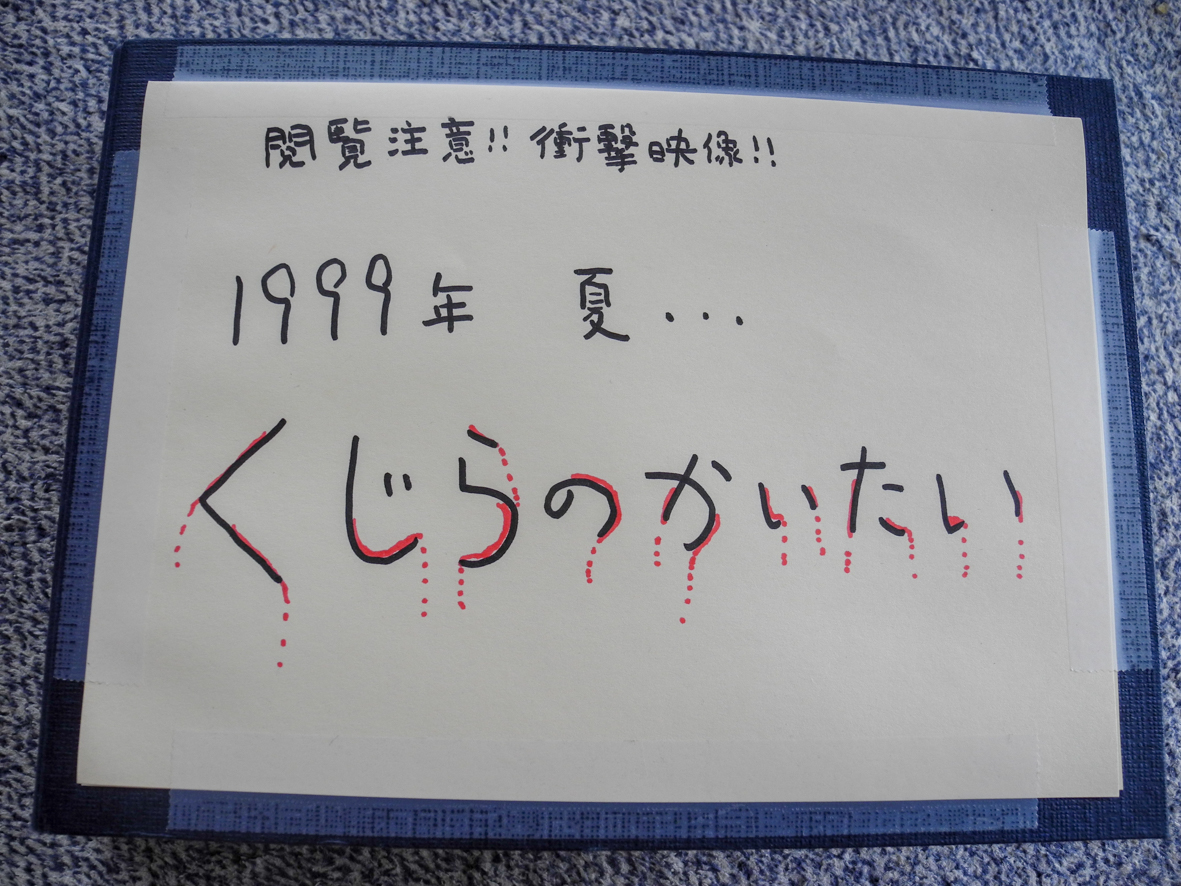 閲覧注意!! 衝撃映像!!
1999年 夏...
くじらのかいたい